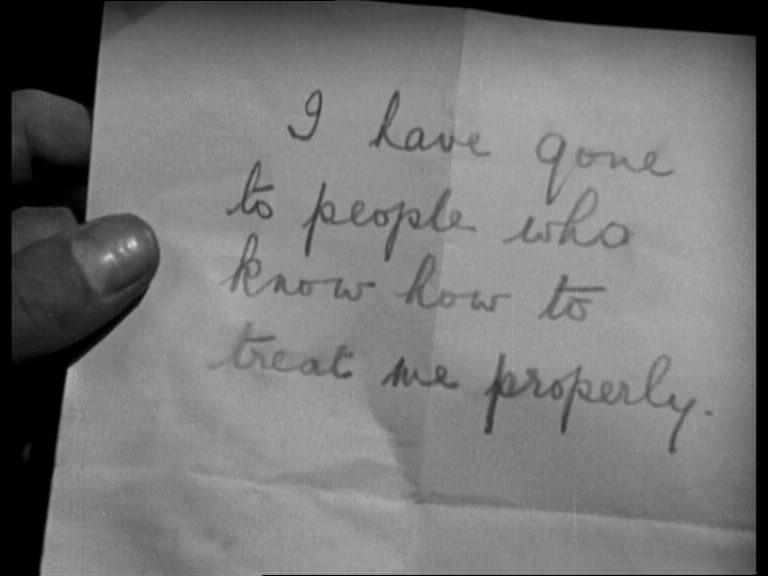 I have gone
to people who
know how to
treat me properly.